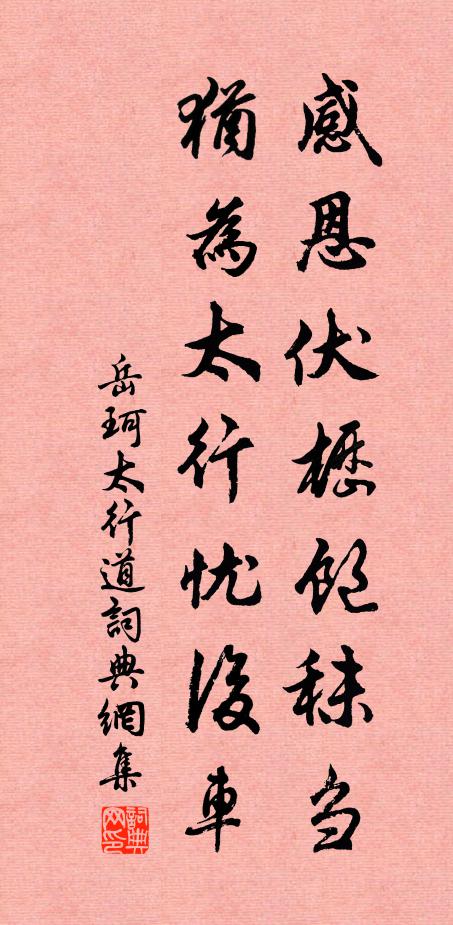 感恩伏櫪飽秣芻
猶為太行忧後車
岳珂太行道詞典網集
詞典网印